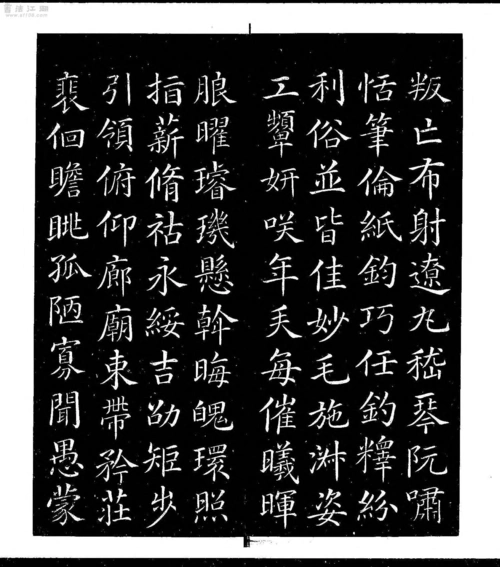 叛亡布射遼丸嵇琴阮嘯
恬筆倫紙鈞巧任釣釋紛
利俗並皆佳妙毛施淑姿
工顰妍咲年矢每催曦暉
朗曜璿璣懸斡晦魄環照
指薪脩祜永綏吉劭矩步
引領俯仰廊廟束帶矜莊
裴佪瞻眺孤陋寡聞愚蒙